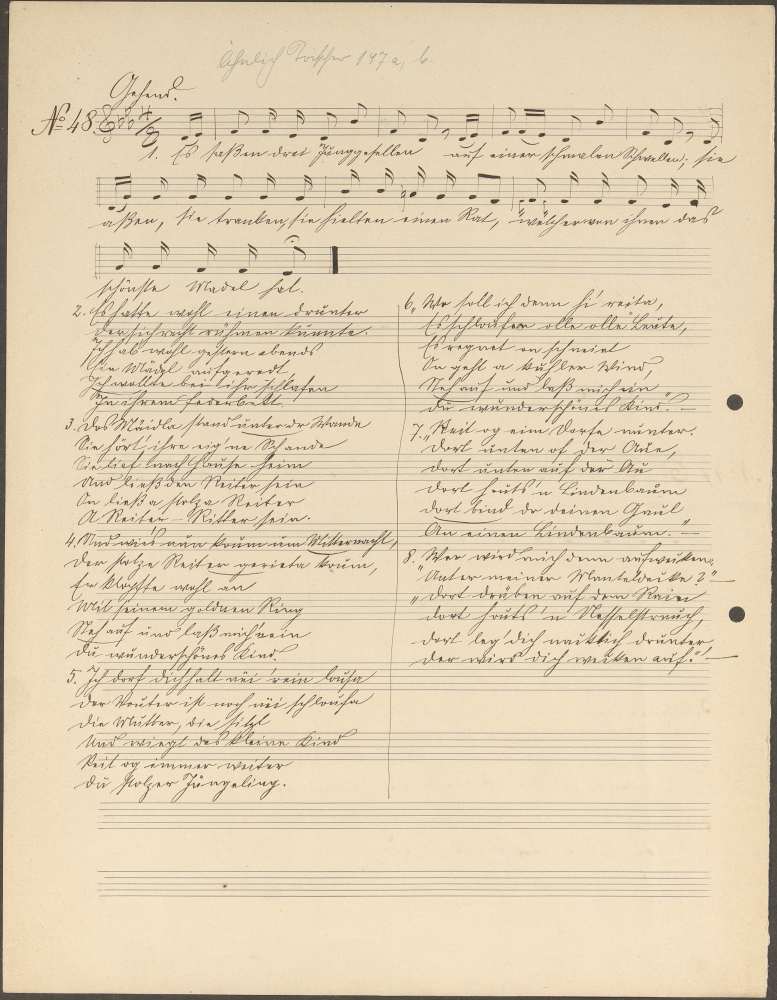 Ähnlich Tocher 147a, b.
Gehend.
No 48.
1. Es saßen drei Junggesellen auf einer schmalen Schwellen; sie
aßen, sie tranken, sie hielten einen Rat, "welcher von ihnen das
schönste Madel hat.
2. Es hatte wohl einen drunter
Der sich recht rühmen kunnte.
Ich hab wohl gestern abends
Ein Mädgl aufgeredt,
Ich wollte bei ihr schlafen
In ihrem Federbett.
3. Das Maidla stand unter dr Wande
Sie hört, ihre eig'ne Schande
Sie lief nach Hause heim
Und ließ den Reiter sein
On ließ a stolza Reiter
A Reiter – Ritter sein.
4. Und wies nun koum um Mitternacht,
Der stolze Reiter gerieta koum,
Er klopfte wohl an
Mit seinem goldnen Ring
Steh auf und laß mich nein
du wunderschönes Kind.
5. Ich dorf dich halt nei rein lousa
Der Vouter ist noch nei schloufa
Die Mutter, die sitzt
Und wiegt das kleine Kind
Reit og immer weiter
Du stolzer Jüngeling.
6. "Wo soll ich denn hi reita,
Es schloafen olle olle Leute,
Es regnet on schneiet
On geht a kuhler Wind,
Steh auf und laß mich ein
du wunderschönes Kind." –
7. "Reit og eim Dorfe nunter.
Dort unten of der Aue,
dort unten auf der Au
Dort houts 'n Lindenbaum
dort bind dr deinen Gaul
An einen Lindenbaum." –
8. Wer wird mich denn aufwecken
"Unter meiner Manteldecke?" –
"dort drüben auf dem Raine
dort houts 'n Nesselstrauch,
dort leg' dich nacktich drunter
der wird dich wecken auf." –